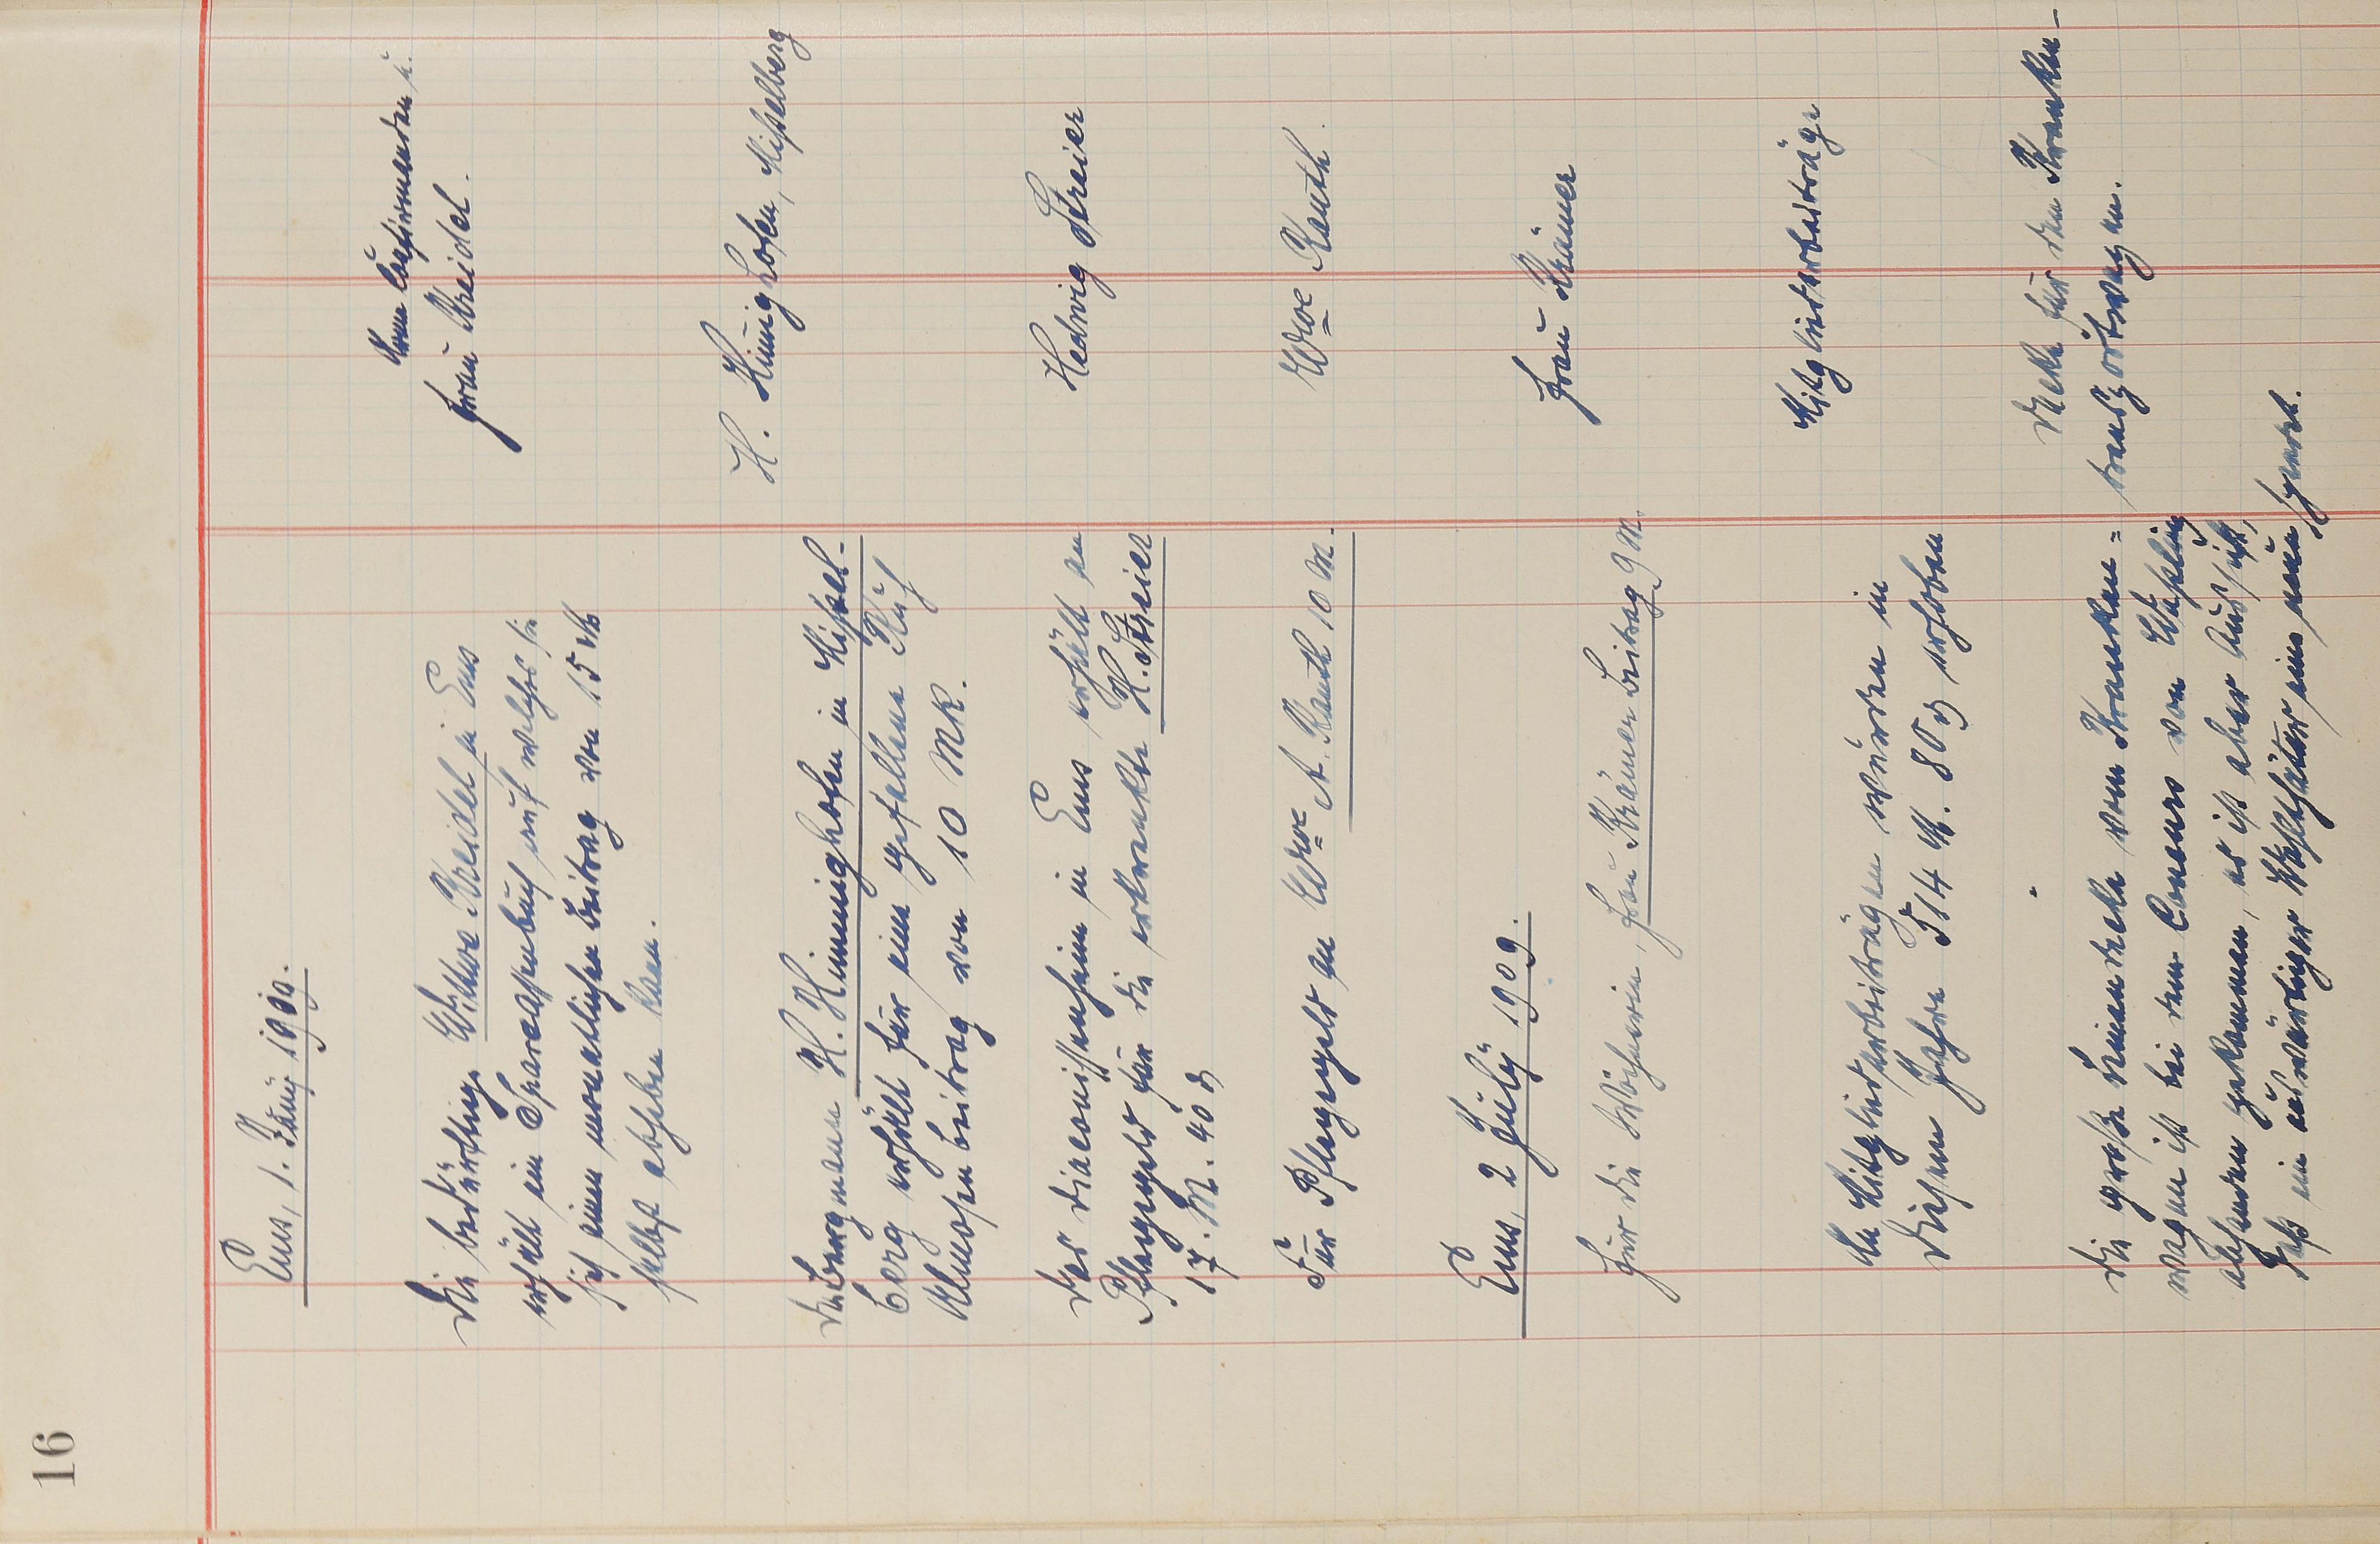 16
Ems, 1. Juni 1909.
Die bedürftige Wittwe Kreidel in Ems
erhält ein Sparcassenbuch auf welches sie
sich einen monatlichen Beitrag von 15 M
selbst abheben kann.
Frau Kreidel.
Bergmann H. Himmighofen in Missel-
berg erhält für eine gefallene Kuh
Almosenbeitrag von 10 Mk.
H. Himighofen, Misselberg
Das Diaconissenheim in Ems erhält an
Pflegegeld für die erkrankte H. Streier
17. M. 40 ₰
Hedwig Streier
Für Pflegegeld an Wwe A. Kauth 10 M.
Wwe Kauth.
Ems, 2 July 1909.
Für die Wöchnerin, Frau Krämer Beitrag 9 M.
Frau Krämer
An Mitgliederbeiträgen wurden in
diesem Jahre 514 M. 80 ₰ erhoben
Mitgliederbeiträge
Die große Leinendecke vom Kranken=
wagen ist bei dem Concurs von
abhanden gekommen, es ist aber Aussicht,
daß ein auswärtiger Wohlthäter eine neue spendet.
Decke für den Kranken-
transportwagen.